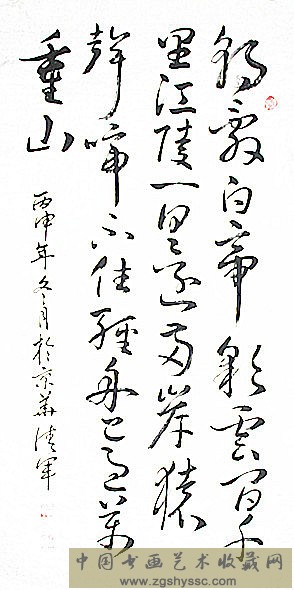 朝辭白帝彩雲間千
里江陵一日還兩岸猿
聲啼不住輕舟已過萬
重山
丙申年冬月於京華
中国书画艺术收藏网
www.zgshyssc.com